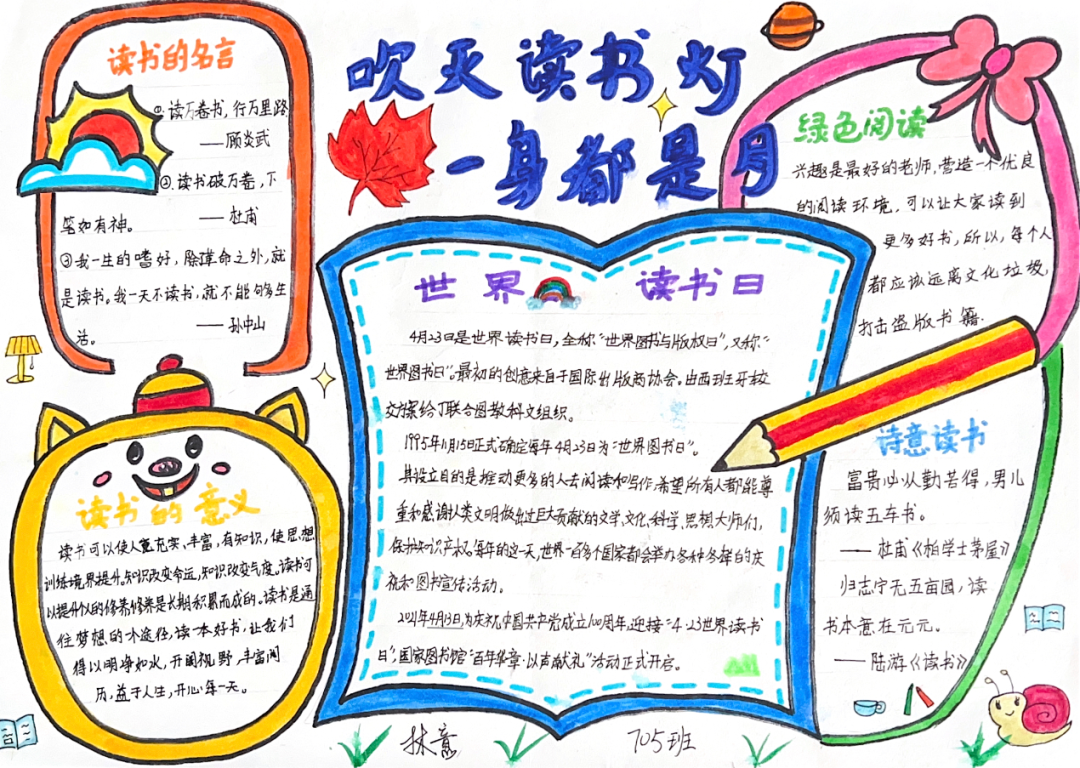 吹灭读书灯
一身都是月
读书的名言
①读万卷书,行万里路
——顾炎武
②.读书破万卷,下
笔如有神。
——杜甫
③我一生的嗜好,除革命之外,就
是读书。我一天不读书,就不能够多生
活。
——孙中山
绿色阅读
兴趣是最好的老师,营造一个优良
的阅读环境,可以让大家读到
更多好书,所以,每个人
都应该远离文化垃圾,
打击盗版书籍.
世界读书日
4月23日是世界读书日,全称“世界图书与版权日”,又称“
世界图书日”。最初的创意来自于国际出版商协会。由西班牙
方案给了联合国教科文组织。
1995年11月15日正式确定每年4月23日为“世界图书日”。
其设立目的是推动更多的人去阅读和写作,希望所有人都能尊
重和感谢人类文明做出过巨大贡献的文学、文化、科学、思想大师们,
保护知识产权。每年的这一天,世界一百多个国家都会举办各种各样的庆
祝和图书宣传活动。
2021年4月13日,为庆祝中国共产党成立100周年,迎接“4·23世界读书
日”,国家图书馆“百年华章·以声献礼”活动正式开启。
读书的意义
读书可以使人充实,丰富,有知识,使思想
训练境界提升。知识改变命运,知识改变气度。读书可
以提升的修养修养是长期积累而成的。读书是通
往梦想的途径,读一本好书,让我们
得以明净如水,开阔视野,丰富阅
历,益于人生,开心每一天。
诗意读书
富贵必从勤苦得,男儿
须读五车书。
——杜甫《柏学士茅屋》
归志宁无五亩园,读
书本意在元元。
——陆游《读书》
林意
705班